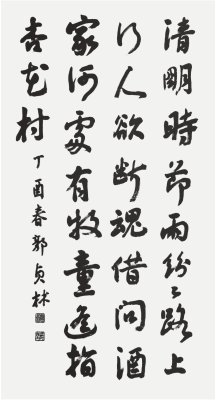 清明時節雨紛々路上
行人欲断魂借問酒
家何處有牧童遥指
杏花村
丁酉春郭貞林